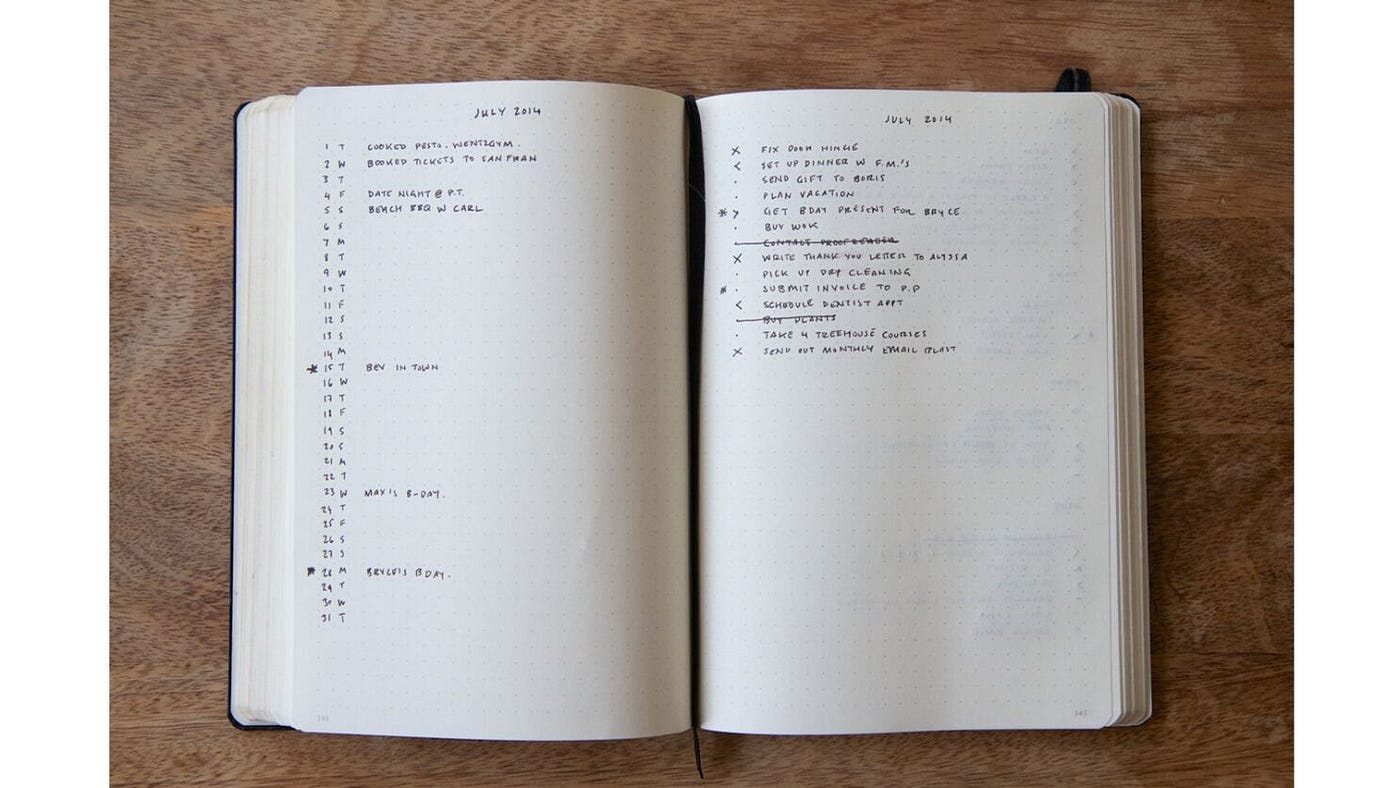 JULY 2014
1 T COOKED PESTO. WENT2GYM.
2 W BOOKED TICKETS TO SAN FRAN
3 T
4 F DATE NIGHT @ P.T.
5 S BEACH BBQ W CARL
6 S
7 M
8 T
9 W
10 T
11 F
12 S
13 S
14 M
* 15 T BEV IN TOWN
16 W
17 T
18 F
19 S
20 S
21 M
22 T
23 W MAX'S B-DAY.
24 T
25 F
26 S
27 S
* 28 M BRYCE'S BDAY.
29 T
30 W
31 T
JULY 2014
X FIX DOOR HINGE
< SET UP DINNER W F.M.'S
· SEND GIFT TO BORIS
· PLAN VACATION
* > GET BDAY PRESENT FOR BRYCE
· BUY WOK
· CONTACT PROOFREADER
X WRITE THANK YOU LETTER TO ALYSSA
· PICK UP DRY CLEANING
* · SUBMIT INVOICE TO P.P
< SCHEDULE DENTIST APPT
· BUY PLANTS
· TAKE 4 TREEHOUSE COURSES
X SEND OUT MONTHLY EMAIL BLAST
145